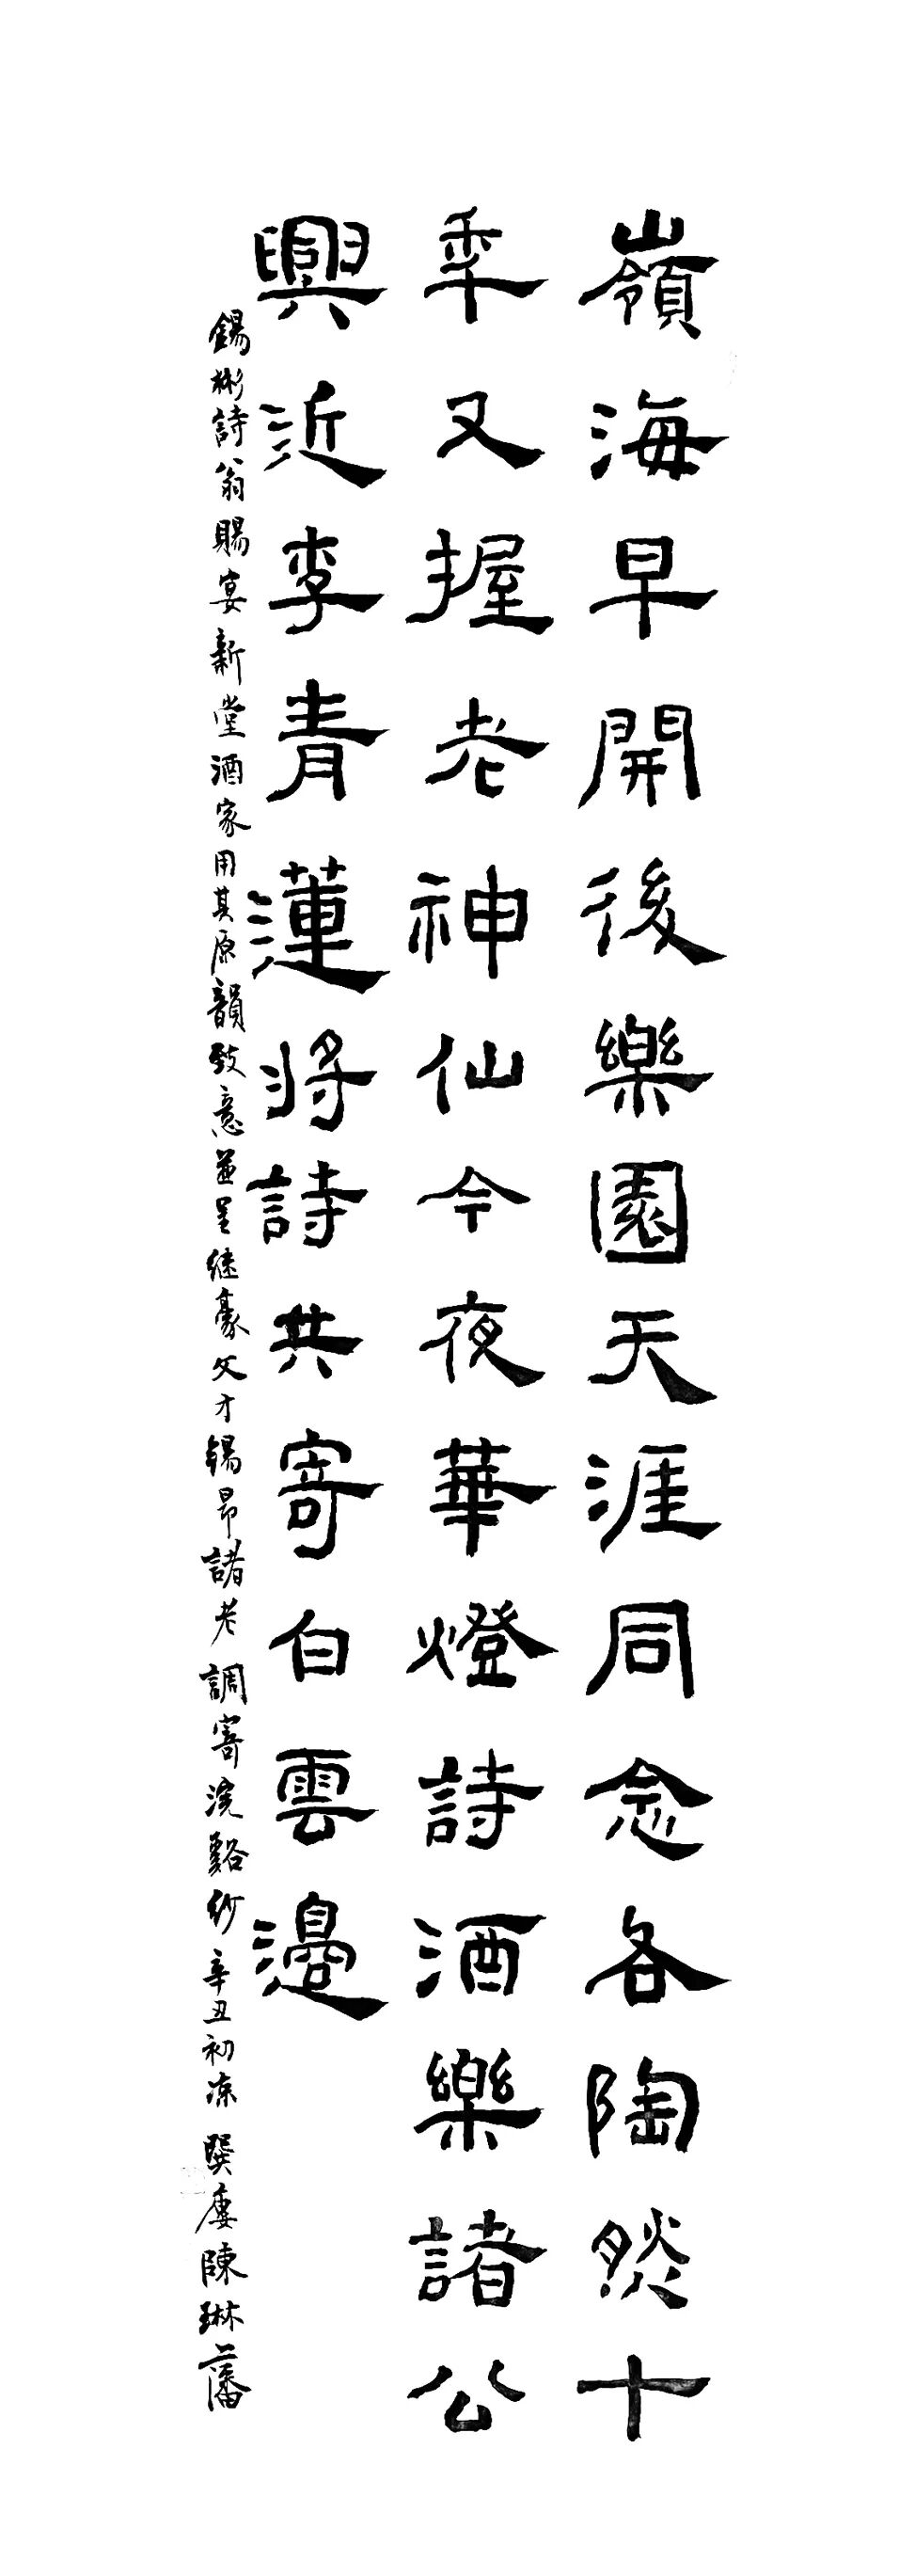 嶺海早開後樂園天涯同念各陶然十
年又握老神仙今夜華燈詩酒樂諸公
興近李青蓮將詩共寄白雲邊
錫彬詩翁賜宴新堂酒家用其原韻致意並呈继豪文才錫昂諸老調寄浣谿纱辛丑初凉巽廔陳琳藩